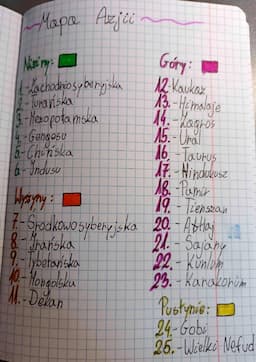 Mapa Azji
Niziny:
1.-Zachodniosyberyjska
2.-Turańska
3.-Mezopotamska
4.-Gangesu
5.-Chińska
6.-Indusu
Wyżyny:
7.-Środkowosyberyjska
8.-Irańska
9.-Tybetańska
10.-Mongolska
11.-Dekan
Góry:
12.-Kaukaz
13.-Himalaje
14.-Zagros
15.-Ural
16.-Taurus
17.-Hindukusz
18.-Pamir
19.-Tienszan
20.-Ałtaj
21.-Sajany
22.-Kunlun
23.-Karakorum
Pustynie:
24.-Gobi
25.-Wielki Nefud